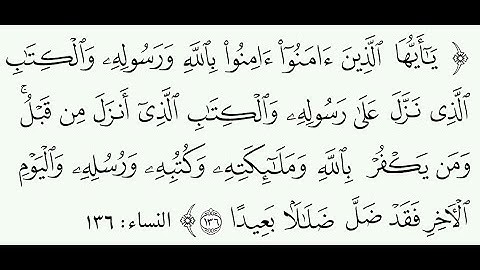 ﴿ يَـٰٓأَيُّهَا ٱلَّذِينَ ءَامَنُوٓا۟ ءَامِنُوا۟ بِٱللَّهِ وَرَسُولِهِۦ وَٱلْكِتَـٰبِ
ٱلَّذِى نَزَّلَ عَلَىٰ رَسُولِهِۦ وَٱلْكِتَـٰبِ ٱلَّذِىٓ أَنزَلَ مِن قَبْلُ ۚ
وَمَن يَكْفُرْ بِٱللَّهِ وَمَلَـٰٓئِكَتِهِۦ وَكُتُبِهِۦ وَرُسُلِهِۦ وَٱلْيَوْمِ
ٱلْـَٔاخِرِ فَقَدْ ضَلَّ ضَلَـٰلًۢا بَعِيدًا ١٣٦ ﴾ النساء: ١٣٦